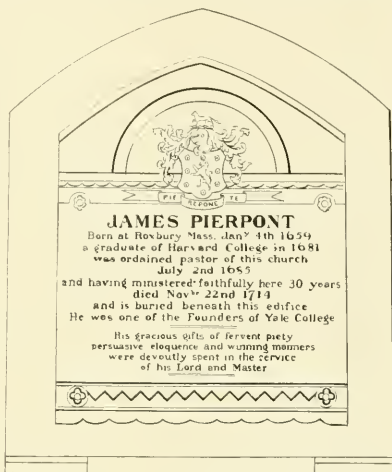 PIE REPONE TE
JAMES PIERPONT
Born at Roxbury Mass. Janʸ 4th 1659
a graduate of Harvard College in 1681
was ordained pastor of this church
July 2nd 1685
and having ministered faithfully here 30 years
died Novᵇᵉʳ 22nd 1714
and is buried beneath this edifice
He was one of the Founders of Yale College
His gracious gifts of fervent piety
persuasive eloquence and winning manners
were devoutly spent in the service
of his Lord and Master